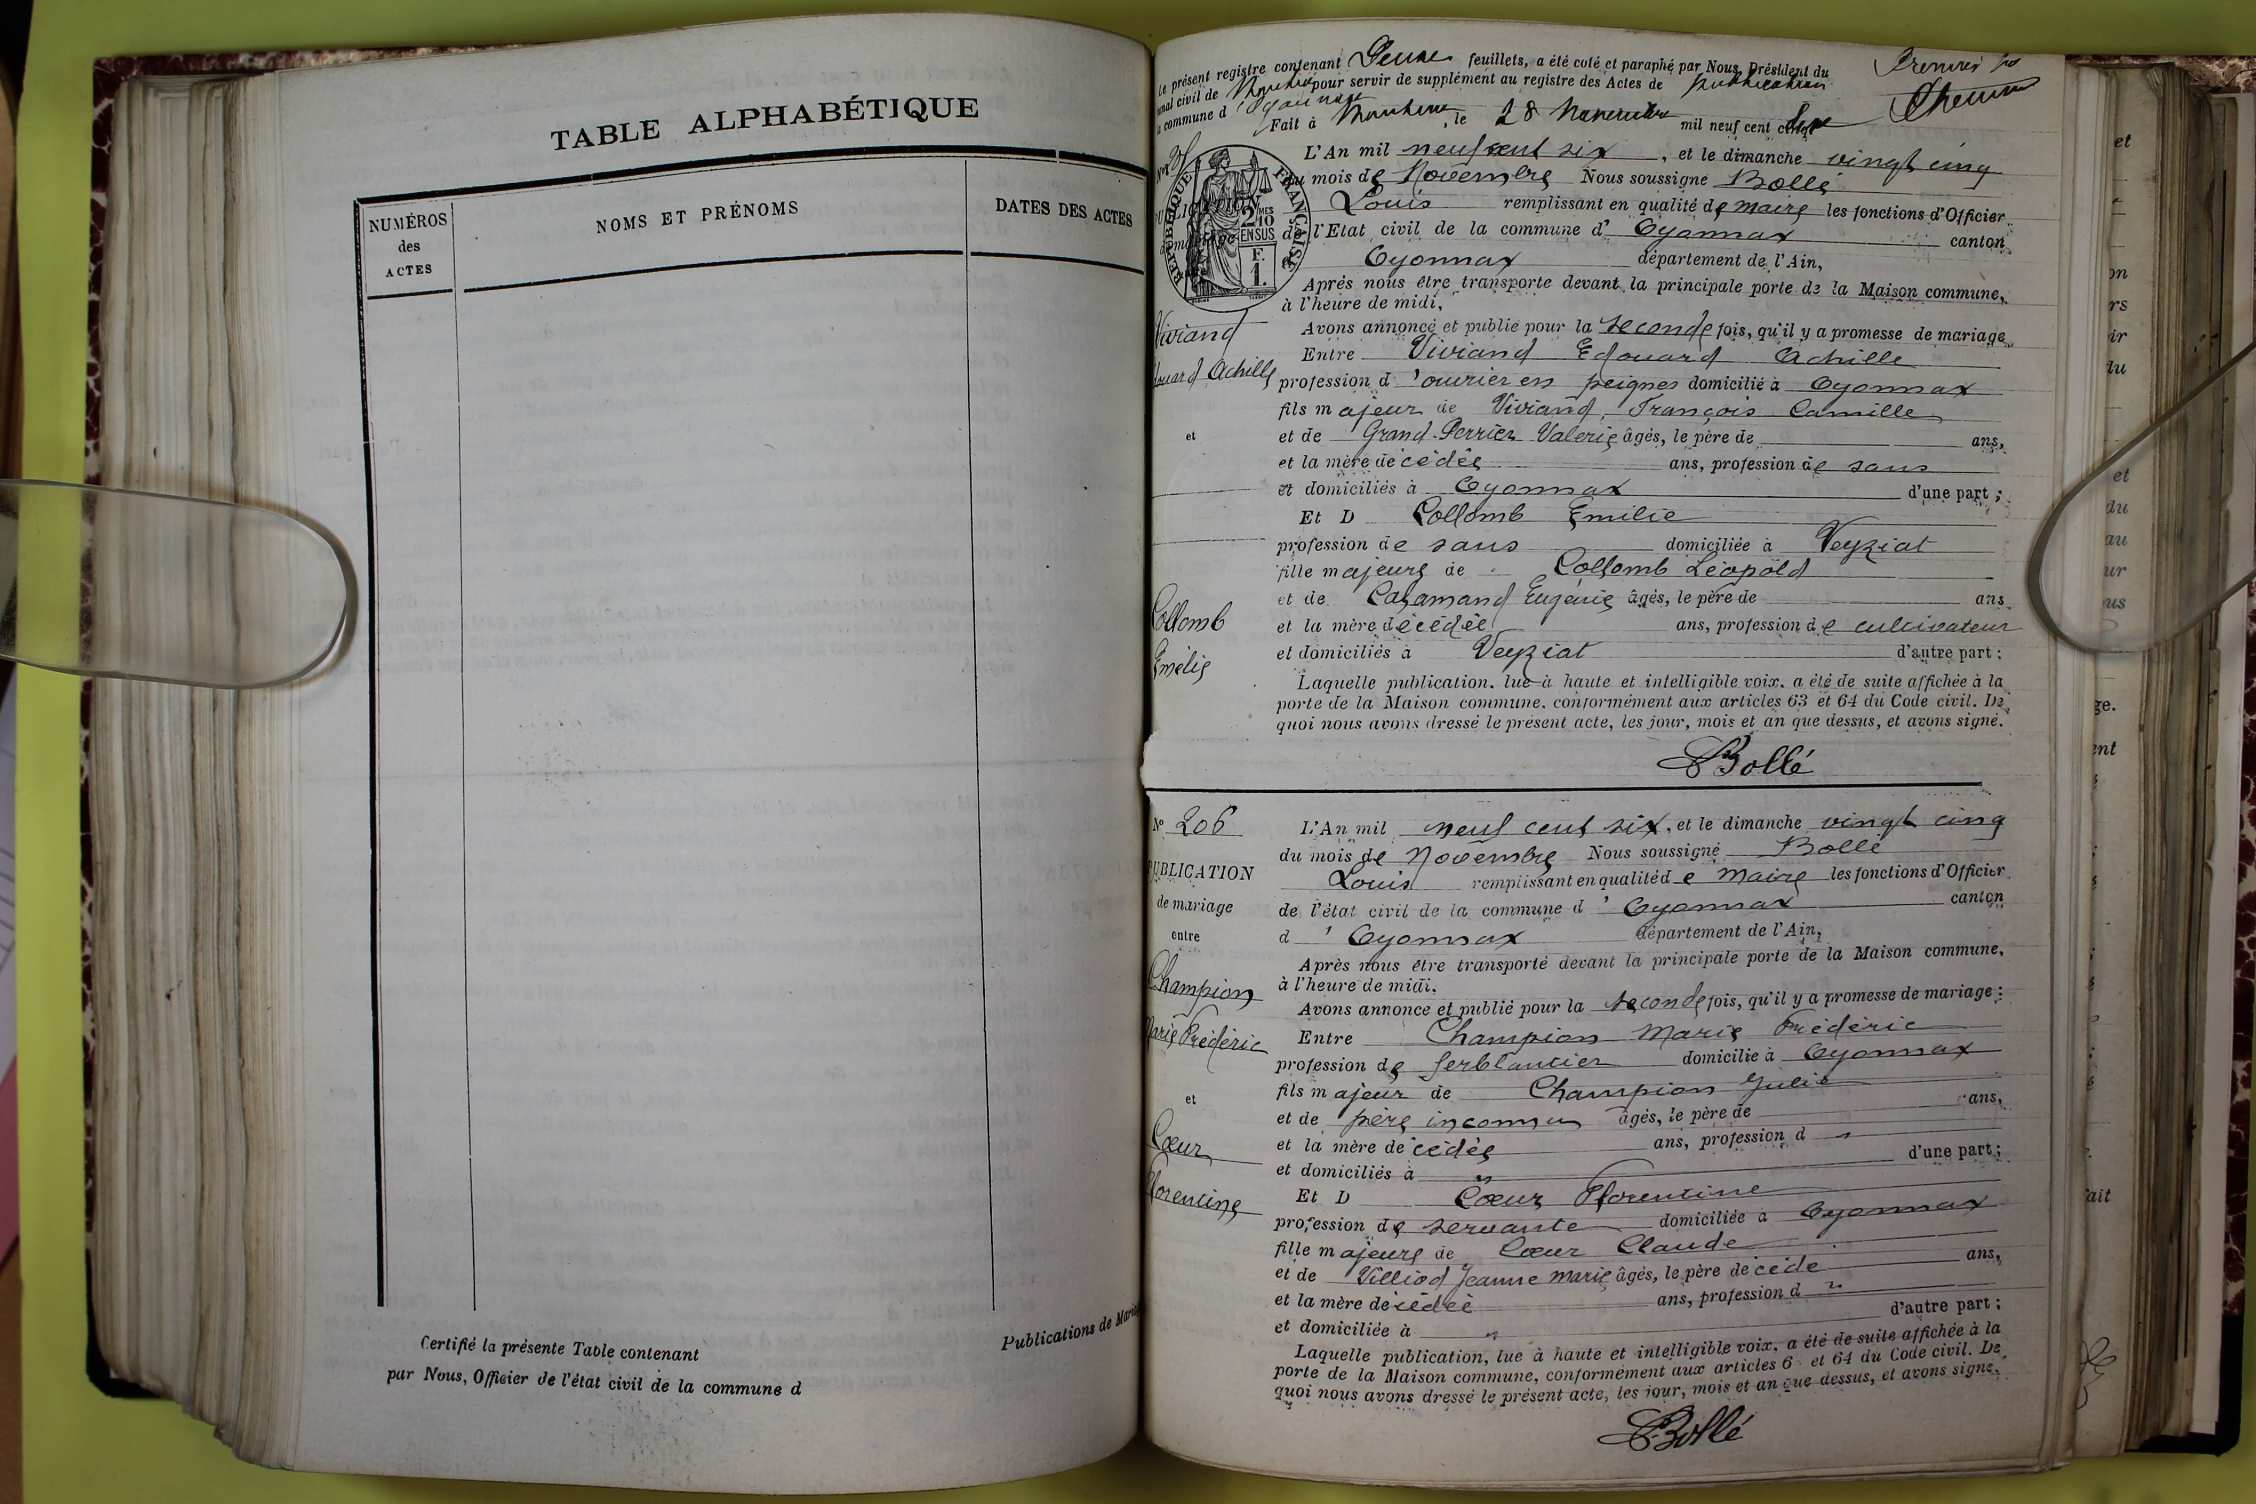 TABLE ALPHABÉTIQUE
NUMÉROS
des
ACTES
NOMS ET PRÉNOMS
DATES DES ACTES
Certifié la présente Table contenant
par Nous, Officier de l'état civil de la commune d
Publications de
Le présent registre contenant Deux feuillets, a été coté et paraphé par Nous, Président du
civil de pour servir de supplément au registre des Actes de Publication
commune d'Oyonnax
Fait à Nantua, le 28 Novembre mil neuf cent
Premier
RÉPUBLIQUE FRANÇAISE
2 MES
10
EN SUS
F.
1.
PUBLICATION
de mariage
L'An mil neuf cent six, et le dimanche vingt cinq
du mois de Novembre Nous soussigné Bollé
Louis remplissant en qualité de maire les fonctions d'Officier
de l'Etat civil de la commune d' Oyonnax canton
Oyonnax département de l'Ain,
Après nous être transporté devant la principale porte de la Maison commune,
à l'heure de midi,
Avons annoncé et publié pour la seconde fois, qu'il y a promesse de mariage
Entre Viviand Edouard Achille
profession d'ouvrier en peignes domicilié à Oyonnax
fils majeur de Viviand François Camille
et de Grand-Perrier Valerie âgés, le père de ans,
et la mère décédée ans, profession de sans
et domiciliés à Oyonnax d'une part ;
Et D Collomb Emilie
profession de sans domiciliée à Veyziat
fille majeure de Collomb Léopold
et de Calamand Eugénie âgés, le père de ans
et la mère décédée ans, profession de cultivateur
et domiciliés à Veyziat d'autre part ;
Laquelle publication, lue à haute et intelligible voix, a été de suite affichée à la
porte de la Maison commune, conformément aux articles 63 et 64 du Code civil. De
quoi nous avons dressé le présent acte, les jour, mois et an que dessus, et avons signé.
Viviand
Edouard Achille
et
Collomb
Emélie
Bollé
N° 206
PUBLICATION
de mariage
entre
Champion
Marie Frédéric
et
Cœur
Florentine
L'An mil neuf cent six, et le dimanche vingt cinq
du mois de Novembre Nous soussigné Bollé
Louis remplissant en qualité de maire les fonctions d'Officier
de l'état civil de la commune d' Oyonnax canton
d' Oyonnax département de l'Ain,
Après nous être transporté devant la principale porte de la Maison commune,
à l'heure de midi,
Avons annoncé et publié pour la seconde fois, qu'il y a promesse de mariage :
Entre Champion Marie Frédéric
profession de ferblantier domicilié à Oyonnax
fils majeur de Champion Julie
et de père inconnu âgés, le père de ans,
et la mère décédée ans, profession d "
et domiciliés à d'une part ;
Et D Cœur Florentine
profession de servante domiciliée à Oyonnax
fille majeure de Cœur Claude
et de Villiod Jeanne Marie âgés, le père décédé ans,
et la mère décédée ans, profession d "
et domiciliée à " d'autre part ;
Laquelle publication, lue à haute et intelligible voix, a été de suite affichée à la
porte de la Maison commune, conformément aux articles 6 et 64 du Code civil. De
quoi nous avons dressé le présent acte, les jour, mois et an que dessus, et avons signé.
Bollé